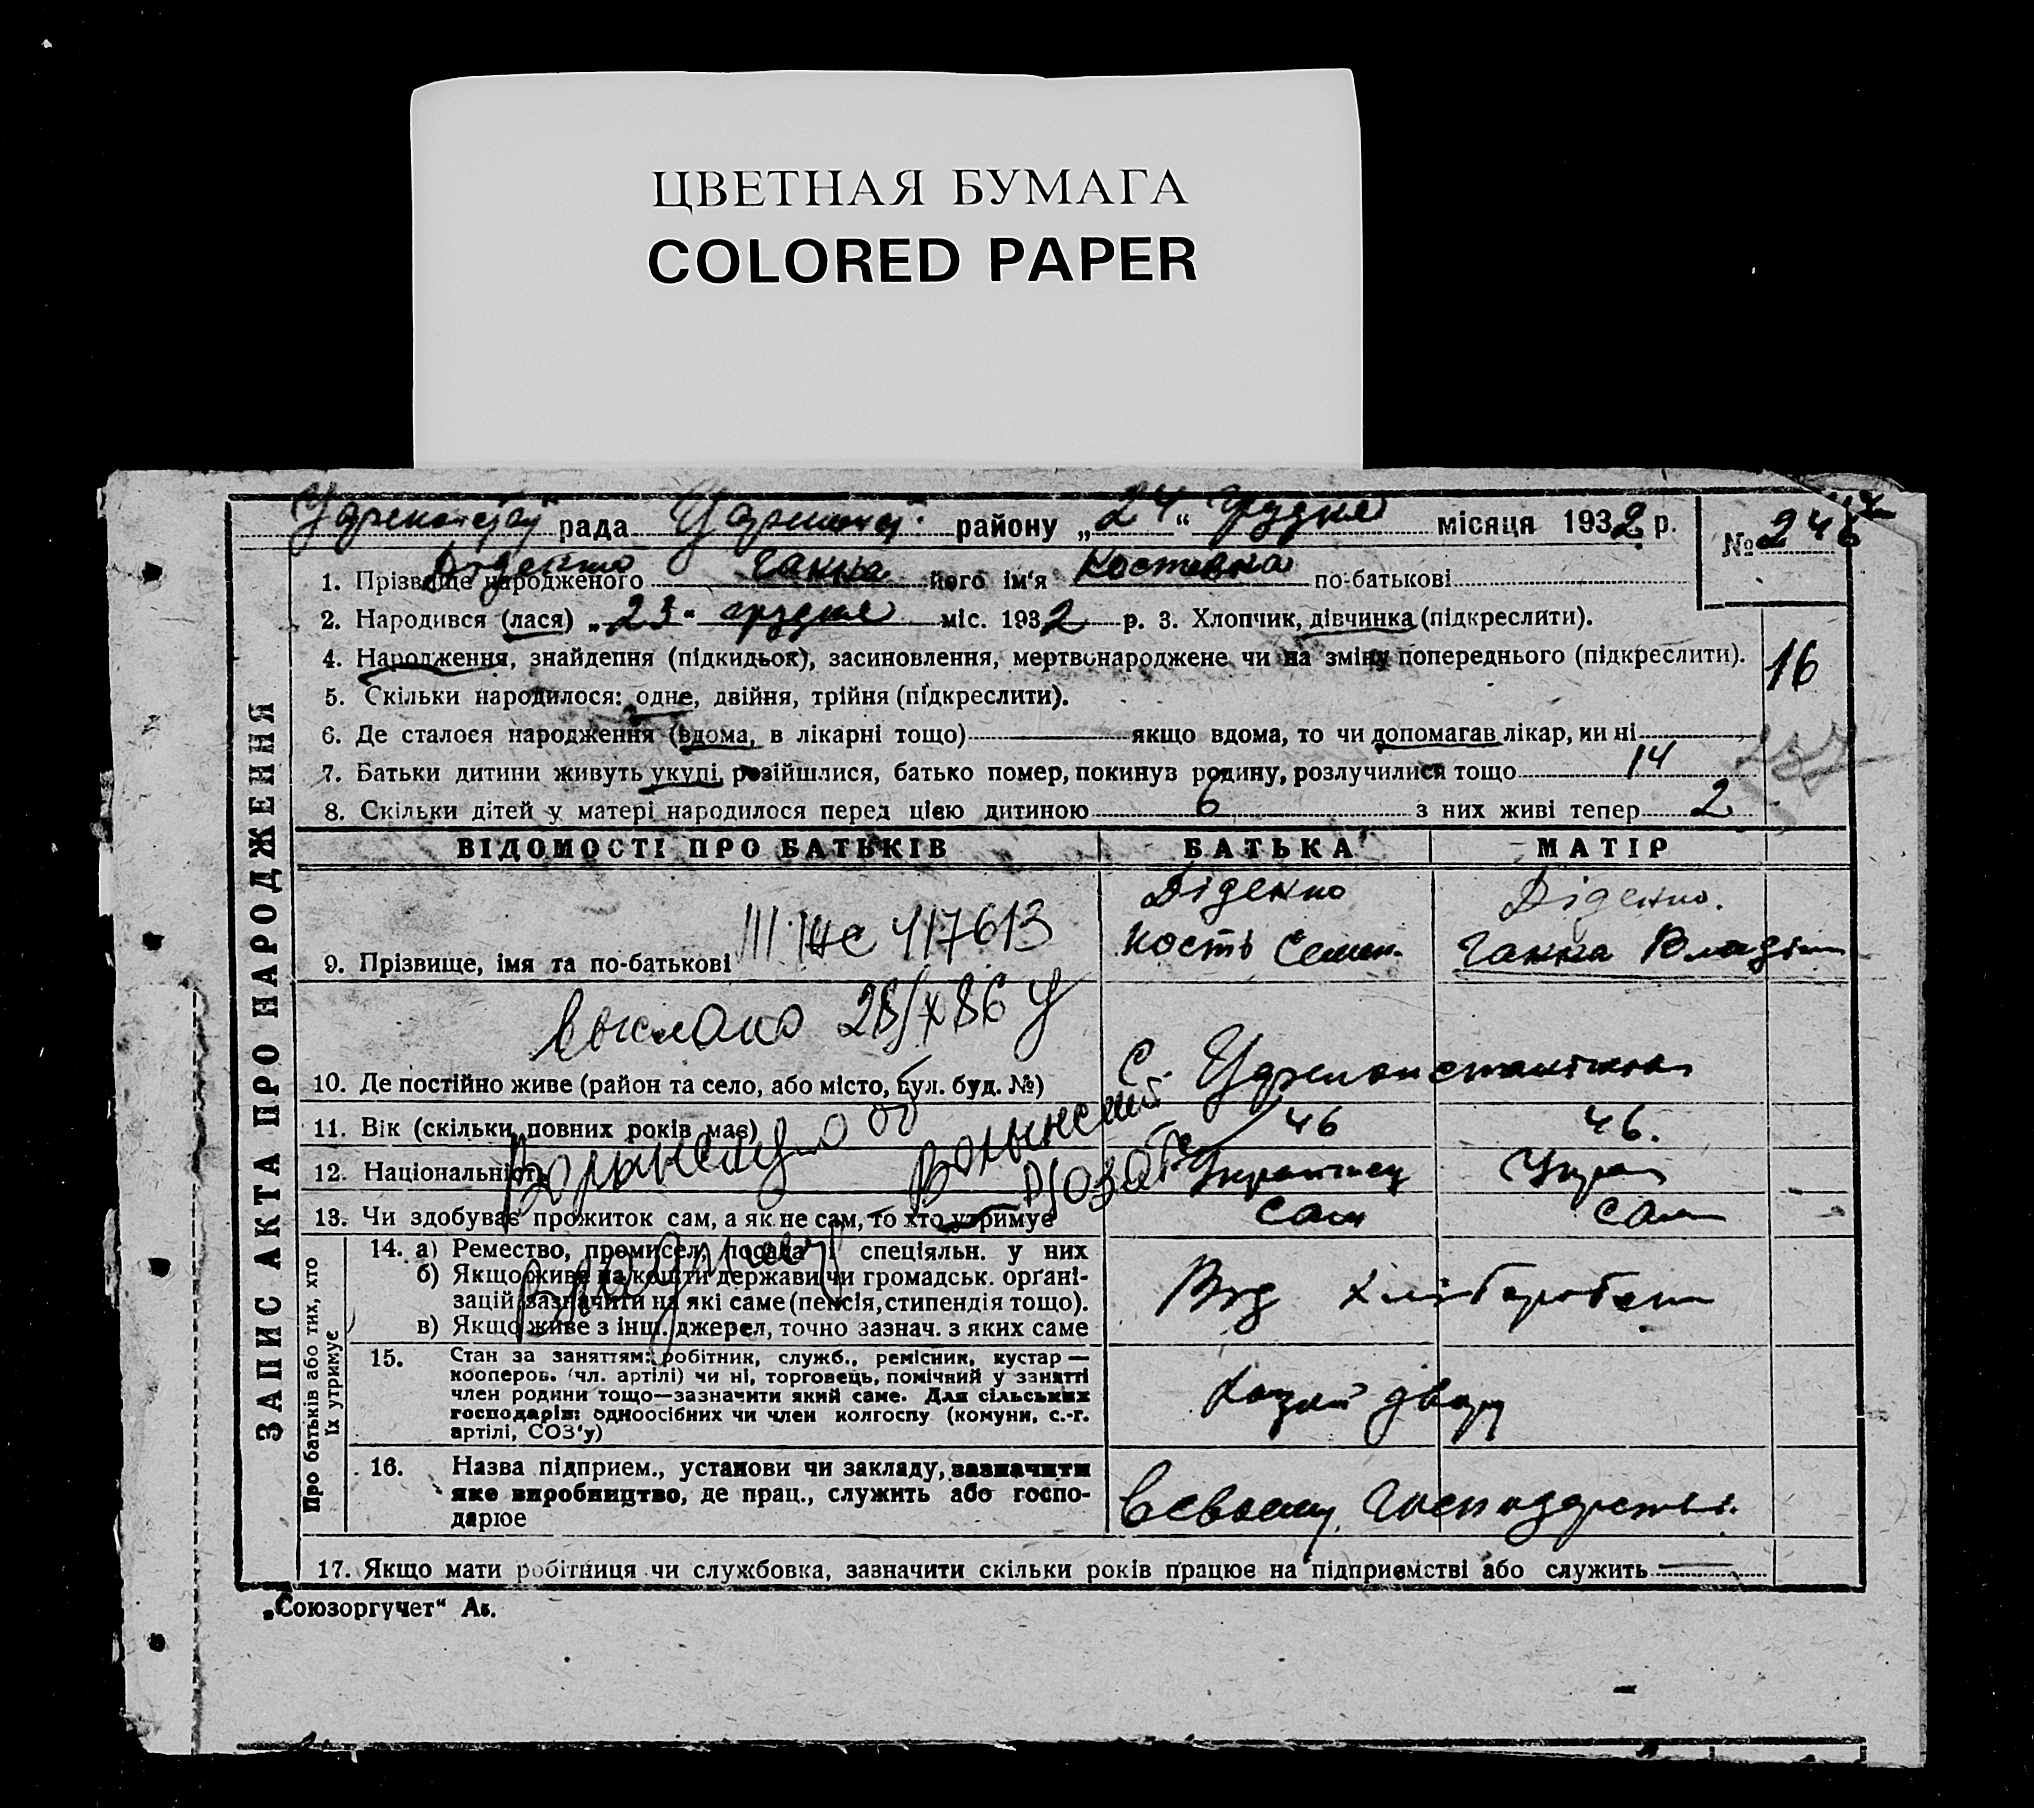 ЦВЕТНАЯ БУМАГА
COLORED PAPER
рада району „24“ Грудня місяця 1932 р. № 246
1. Прізвище народженого Діденко Ганна його ім'я Костівна по-батькові
2. Народився (лася) „23“ грудня міс. 1932 р. 3. Хлопчик, дівчинка (підкреслити).
4. Народження, знайдення (підкидьок), засиновлення, мертвонароджене чи на зміну попереднього (підкреслити).
16
5. Скільки народилося: одне, двійня, трійня (підкреслити).
6. Де сталося народження (вдома, в лікарні тощо) якщо вдома, то чи допомагав лікар, чи ні
7. Батьки дитини живуть укупі, розійшлися, батько помер, покинув родину, розлучилися тощо 14
8. Скільки дітей у матері народилося перед цією дитиною 6 з них живі тепер 2
ВІДОМОСТІ ПРО БАТЬКІВ БАТЬКА МАТІР
Діденко Діденко.
9. Прізвище, імя та по-батькові 117613 Кость Семен. Ганна
выслано 28/X 86
10. Де постійно живе (район та село, або місто, вул. буд. №) С.
11. Вік (скільки повних років має) 46 46.
12. Національність Украинец Укра
13. Чи здобуває прожиток сам, а як не сам, то хто утримує сам сам
14. а) Ремество, промисел, посада і спеціяльн. у них
б) Якщо живе на кошти держави чи громадськ. орґані-
зацій зазначити на які саме (пенсія, стипендія тощо).
в) Якщо живе з інш. джерел, точно зазнач. з яких саме
хліборобст
15. Стан за заняттям: робітник, служб., ремісник, кустар —
кооперов. (чл. артілі) чи ні, торговець, помічний у занятті
член родини тощо—зазначити який саме. Для сільських
господарів: одноосібних чи член колгоспу (комуни, с.-г.
артілі, СОЗ'у)
двор
16. Назва підприєм., установи чи закладу, зазначити
яке виробництво, де прац., служить або госпо-
дарює
17. Якщо мати робітниця чи службовка, зазначити скільки років працює на підприємстві або служить
Про батьків або тих, хто
їх утримує
ЗАПИС АКТА ПРО НАРОДЖЕННЯ
„Союзоргучет“